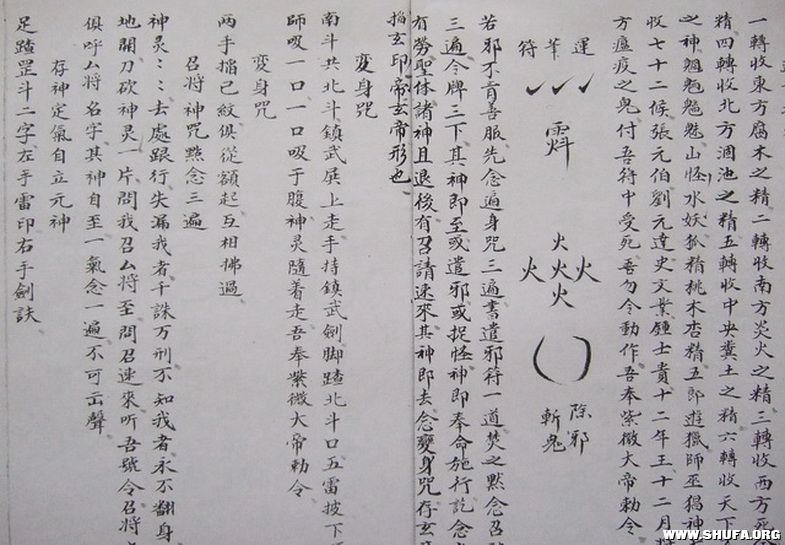 一轉收東方腐木之精二轉收南方炎火之精三轉收西方死金
精四轉收北方涸池之精五轉收中央糞土之精六轉收天下
之神魈魁魖魅山怪水妖狐精桃木杏精五郎遊獵師巫猖神
收七十二候張元伯劉元達史文業鍾士貴十二年王十二月將
方瘟疫之鬼付吾符中受死吾勿令動作吾奉紫微大帝勅令
運竿符
火火火火火
除邪
斬鬼
若邪不肯善服先念遍身咒三遍書遣邪符一道焚之黙念召
三遍令牌三下其神即至或遣邪或捉怪神即奉命施行訖念
有勞聖休諸神且退後有召請速來其神即去念變身咒存玄
搯玄印帝玄帝形也
変身咒
南斗共北斗鎮武房上走手持鎮武劍脚蹅北斗口五雷披下
師吸一口一口吸于腹神灵隨着走吾奉紫微大帝勅令
変身咒
兩手搯己紋俱從額起互相拂過
召將神咒黙念三遍
神灵〻〻去處跟行失漏我者千誅万刑不知我者永不翻身
地開刀砍神灵一片問我召厶將至問召速來听吾號令召將
俱呼厶將名字其神自至一氣念一遍不可出聲
存神定氣自立元神
足蹅罡斗二字左手雷印右手劍訣
WWW.SHUFA.ORG